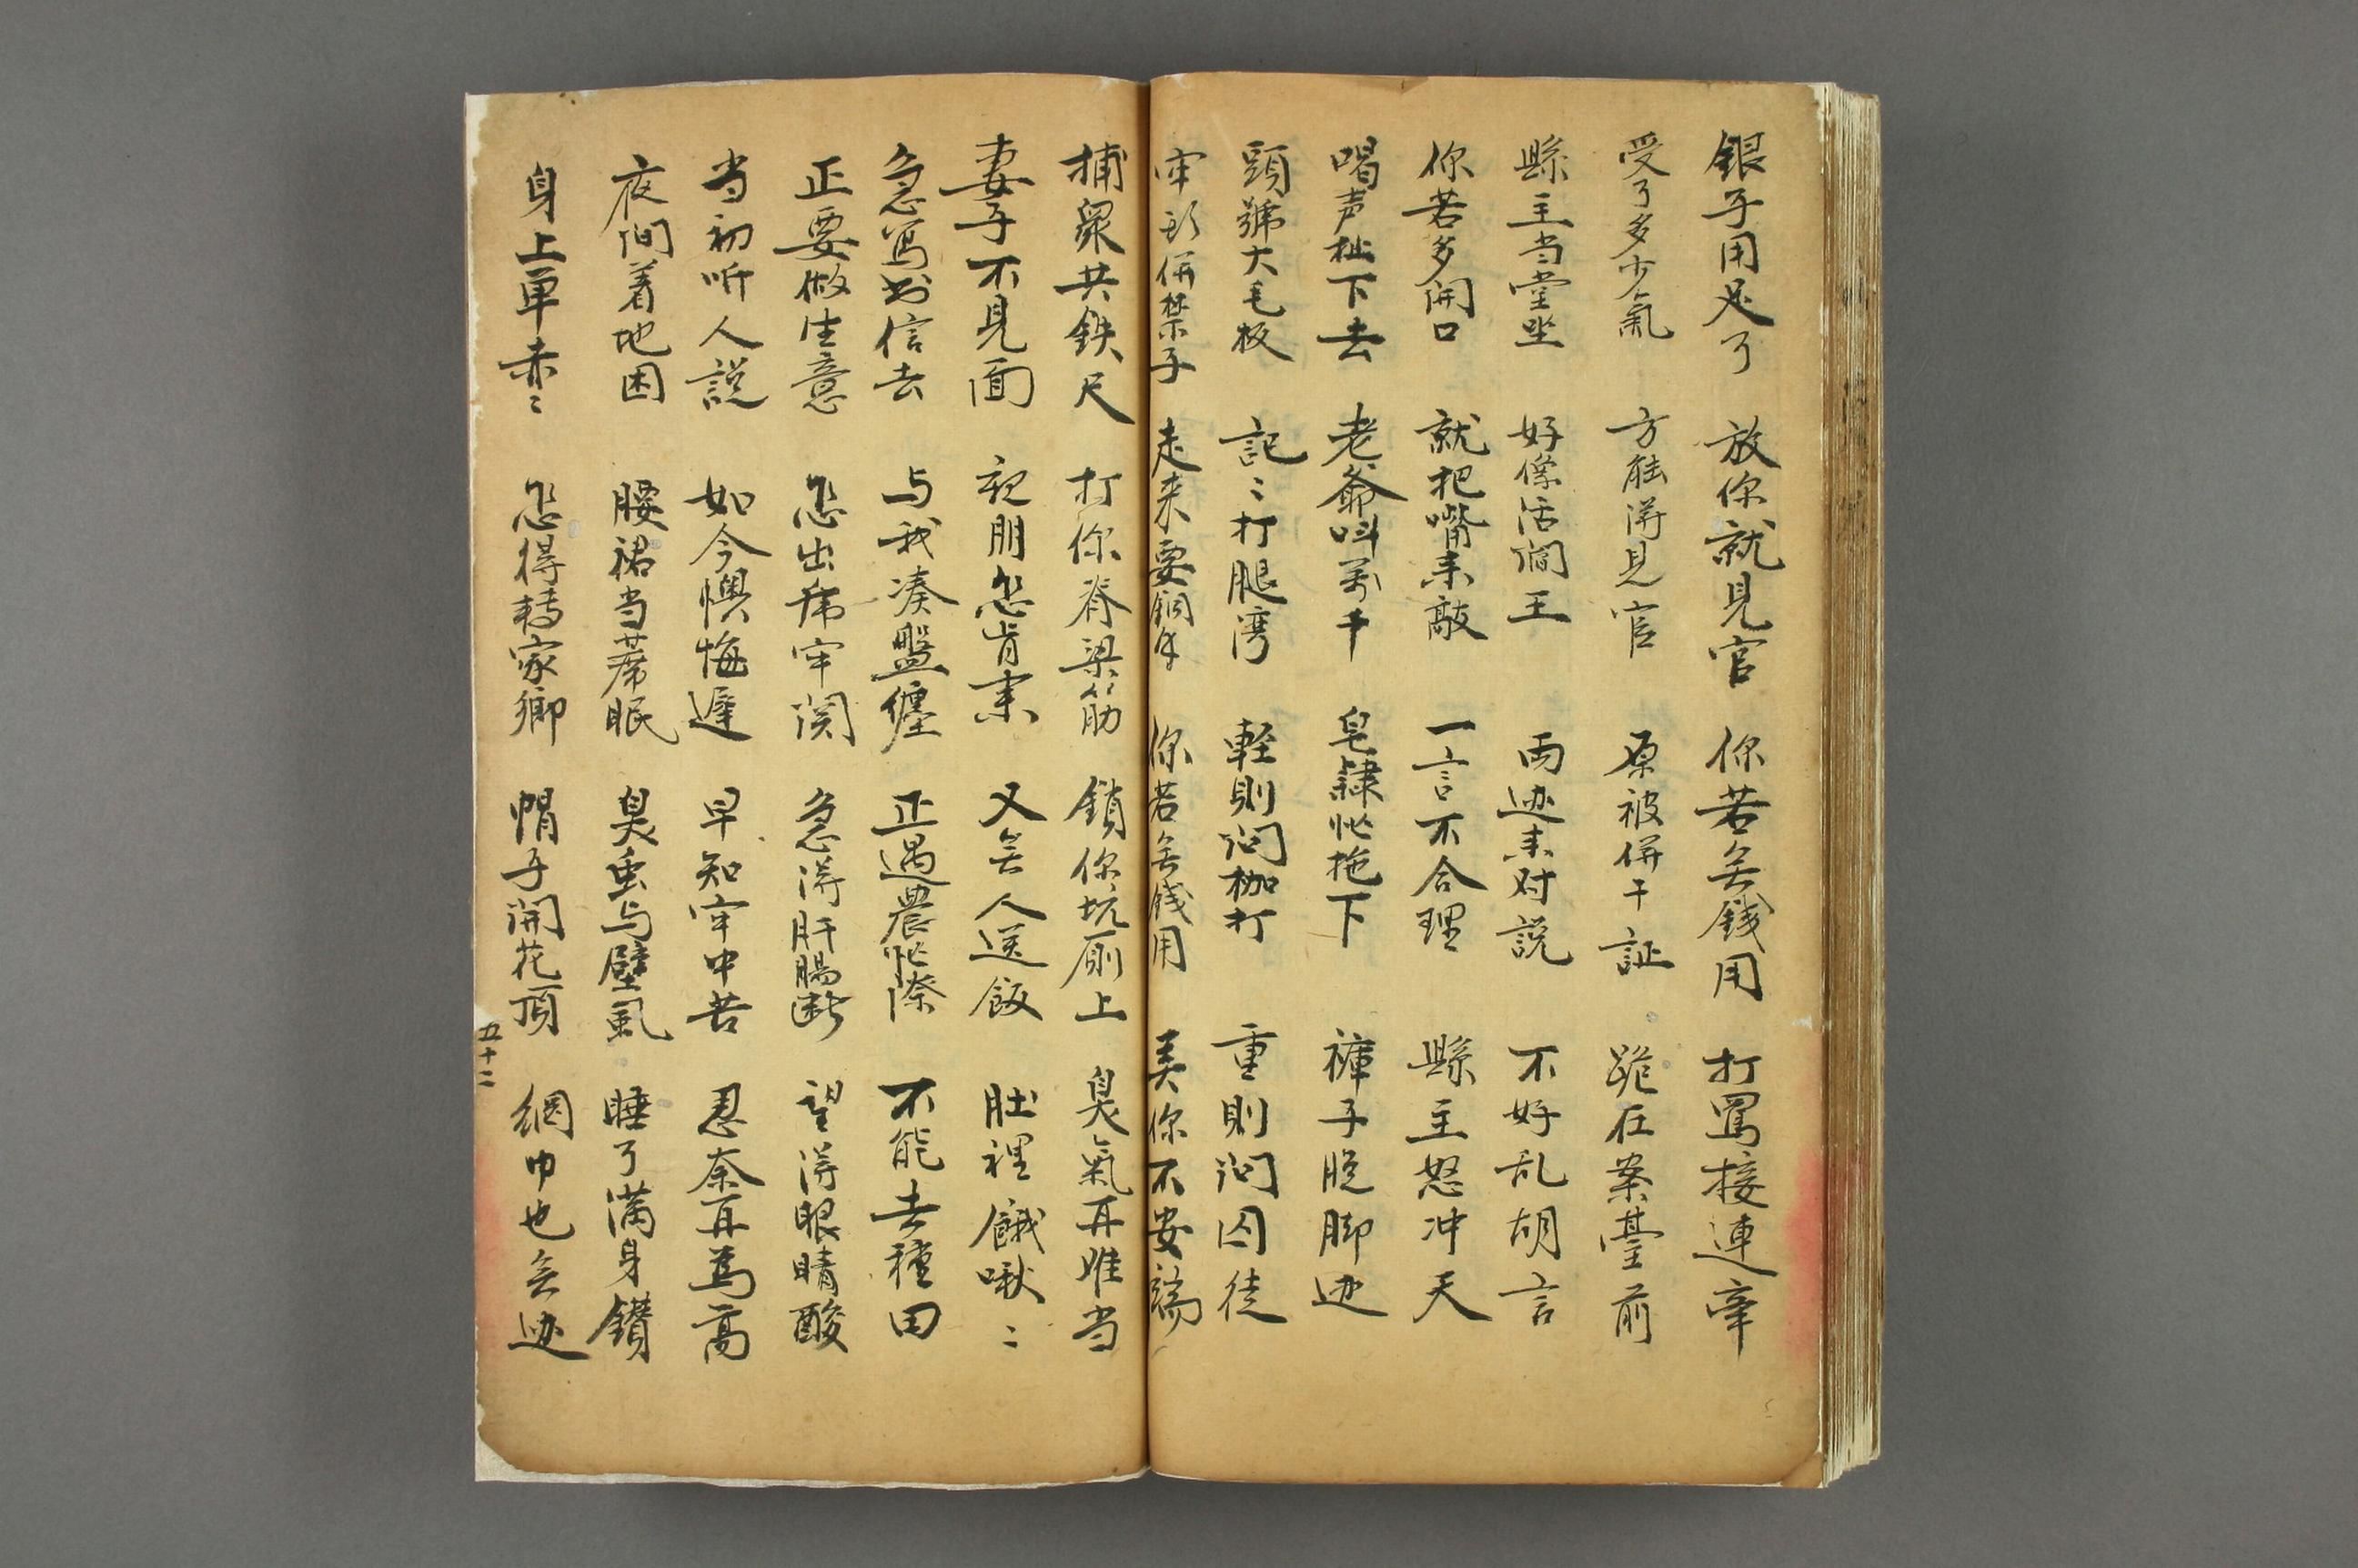 銀子用足了 放你就見官 你若无錢用 打罵接連牽
受了多少氣 方能淂見官 原被併干証 跪在案臺前
縣主当堂坐 好像活閻王 両边来对説 不好乱胡言
你若多開口 就把嘴来敲 一言不合理 縣主怒冲天
喝声扯下去 老爺叫若干 皂隸忙拖下 褲子脱脚边
頭號大毛板 記〻打腿湾 軽則问枷打 重則问囚徒
牢头併禁子 走来要銅手 你若无錢用 美你不安端
捕衆共鉄尺 打你脊梁筋 鎖你坑厠上 臭氣再难当
妻子不見面 親朋怎肯来 又无人送飯 肚裡餓啾〻
急写书信去 与我凑盤纏 正遇農忙際 不能去種田
正要做生意 怎出茀牢関 急淂肝腸断 望淂眼睛酸
当初听人説 如今懊悔遲 早知牢中苦 忍奈再為高
夜间着地困 腰裙当蓆眠 臭虫与壁虱 睡了满身鑽
身上单赤〻 怎得轉家鄉 帽子開花頂 網巾也无边
五十二